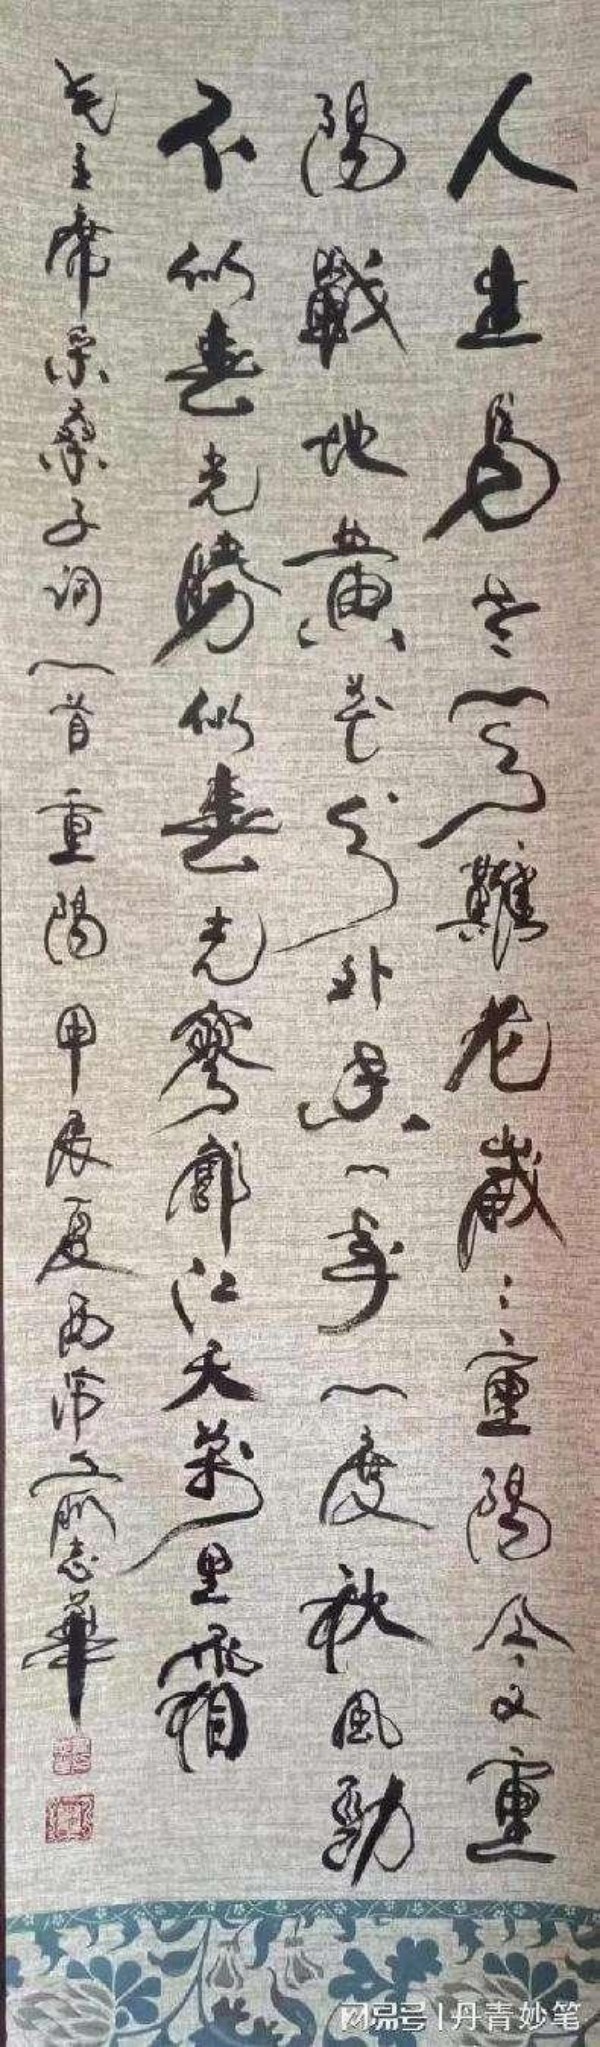 人生易老天難老歲〻重陽今又重
陽戰地黃花分外香一年一度秋風勁
不似春光勝似春光寥廓江天萬里霜
毛主席采桑子词一首重陽甲辰夏志華
网易号 | 丹青妙笔